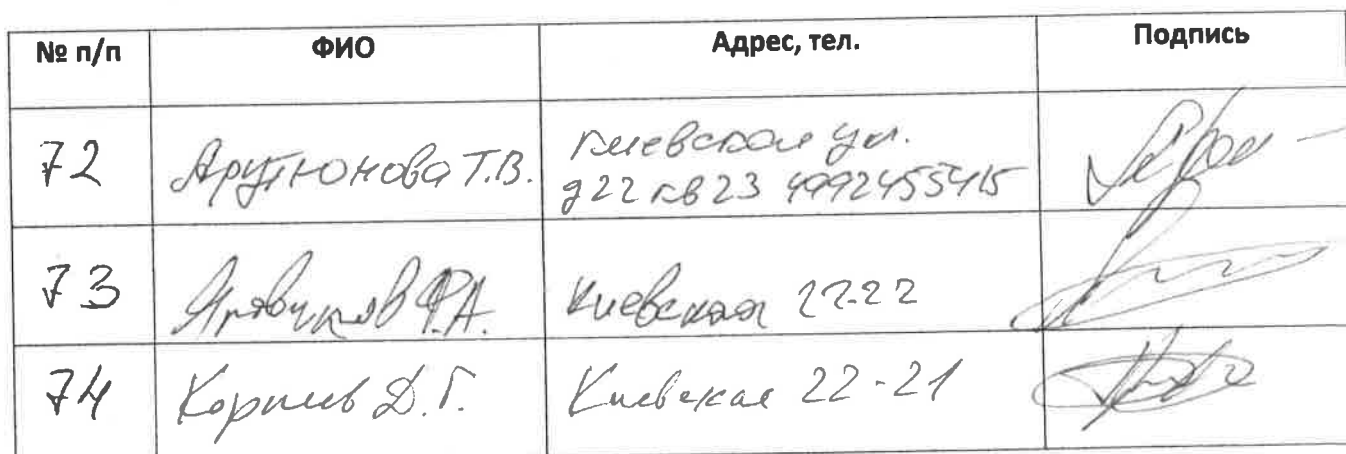 № п/п ФИО Адрес, тел. Подпись
72 Арутюнова Т.В. Киевская ул.
д22 кв23 4992455415
73 Киевская 22-22
74 Корнеев Д.Г. Киевская 22-21